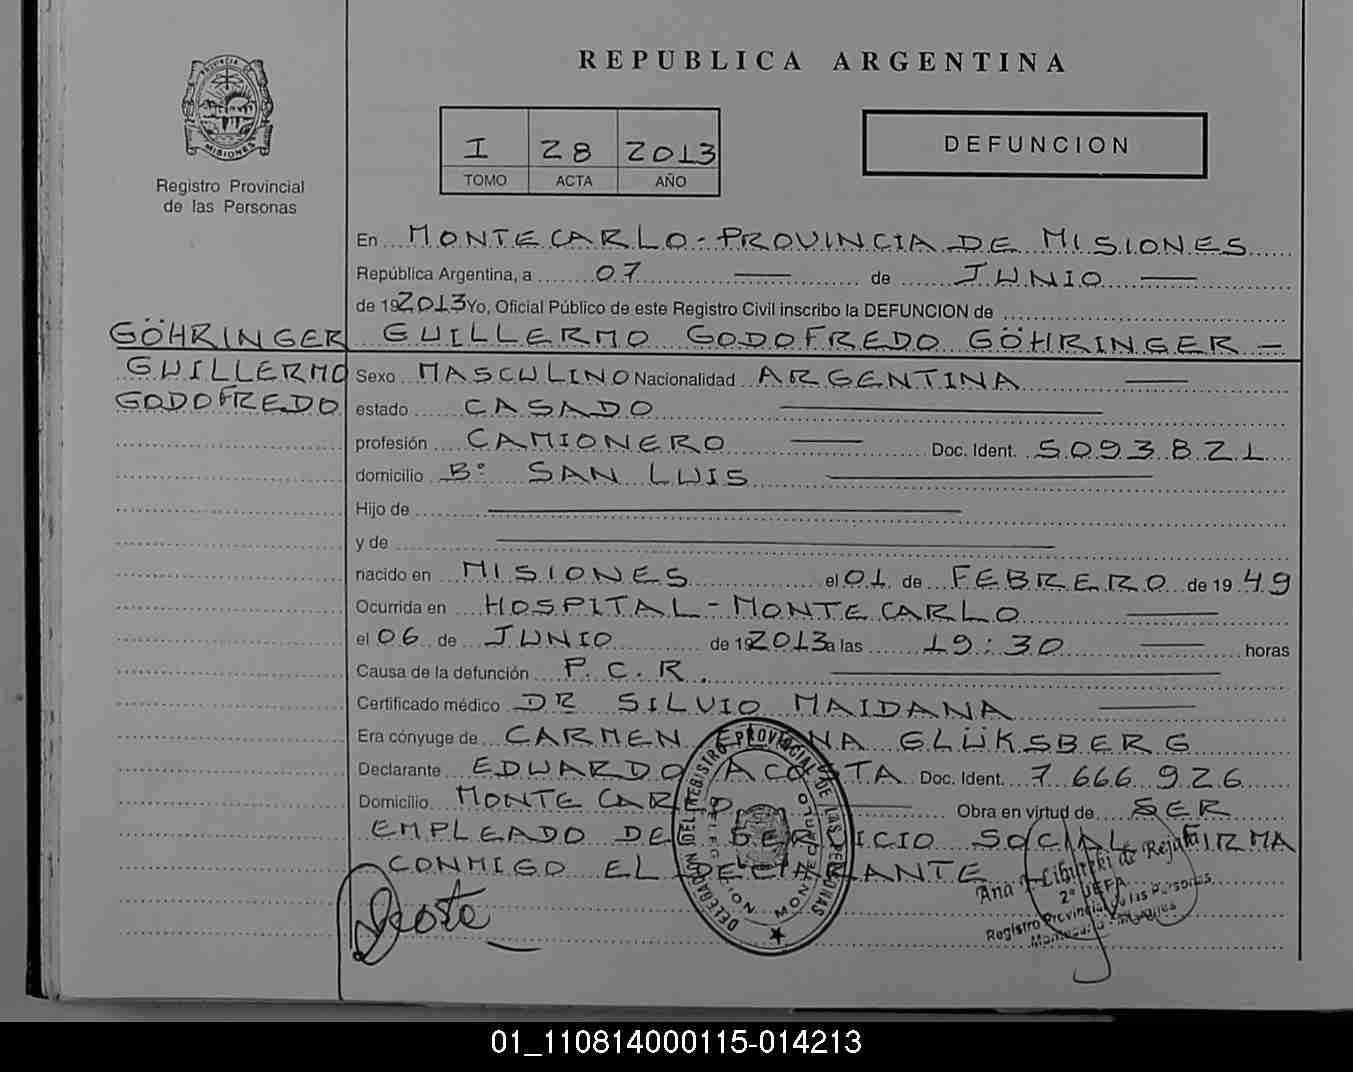 REPUBLICA ARGENTINA
PROVINCIA DE MISIONES
Registro Provincial
de las Personas
I 28 2013
TOMO ACTA AÑO
DEFUNCION
En MONTECARLO - PROVINCIA DE MISIONES
República Argentina, a 07 de JUNIO
de 192013 Yo, Oficial Público de este Registro Civil inscribo la DEFUNCION de
GÖHRINGER
GUILLERMO
GODOFREDO
GUILLERMO GODOFREDO GÖHRINGER -
Sexo MASCULINO Nacionalidad ARGENTINA
estado CASADO
profesión CAMIONERO Doc. Ident. 5093821
domicilio Bº SAN LUIS
Hijo de
y de
nacido en MISIONES el 01 de FEBRERO de 1949
Ocurrida en HOSPITAL - MONTECARLO
el 06 de JUNIO de 192013 a las 19:30 horas
Causa de la defunción P.C.R.
Certificado médico DR SILVIO MAIDANA
Era cónyuge de CARMEN GLÜKSBERG
Declarante EDUARDO ACOSTA Doc. Ident. 7.666.926
Domicilio MONTECARLO Obra en virtud de SER
EMPLEADO DEL SERVICIO SOCIAL FIRMA
CONMIGO EL DECLARANTE
Acosta
DELEGACION DEL REGISTRO PROVINCIAL DE LAS PERSONAS
DELEGACION MONTECARLO
Ana de
2º JEFA
Registro Provincial de las Personas
Montecarlo - Misiones
01_110814000115-014213